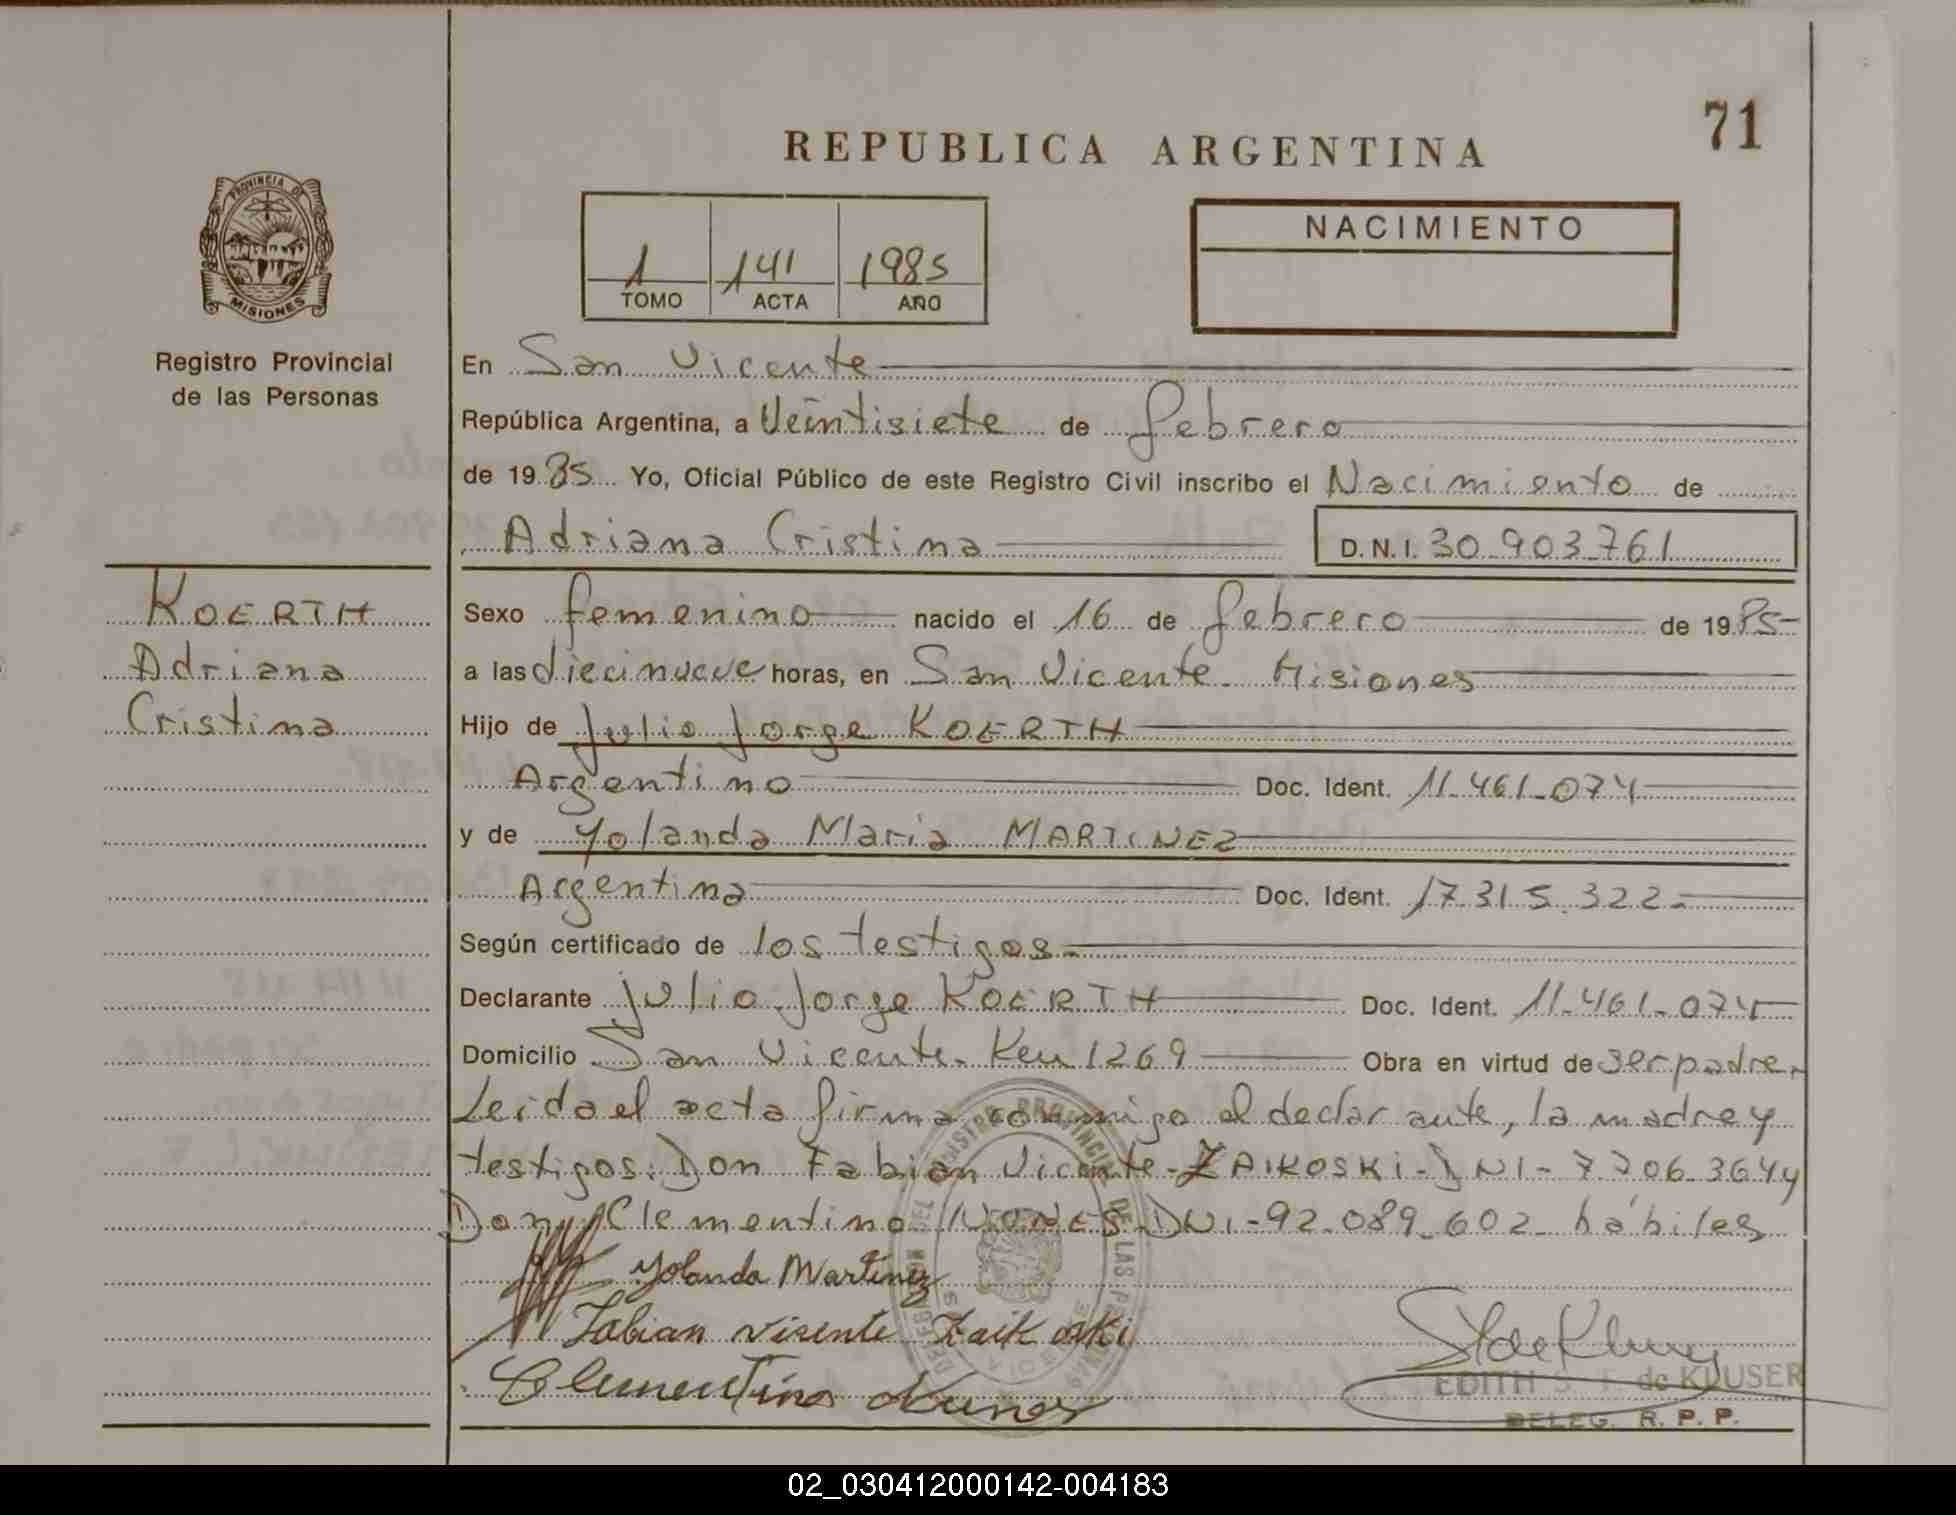 71
REPUBLICA ARGENTINA
PROVINCIA DE
MISIONES
Registro Provincial
de las Personas
1 141 1985
TOMO ACTA AÑO
NACIMIENTO
En San Vicente
República Argentina, a Veintisiete de febrero
de 19 85 Yo, Oficial Público de este Registro Civil inscribo el Nacimiento de
Adriana Cristina D.N.I. 30-903-761
KOERTH
Adriana
Cristina
Sexo femenino nacido el 16 de febrero de 19 85
a las diecinueve horas, en San Vicente - Misiones
Hijo de Julio Jorge KOERTH
Argentino Doc. Ident. 11-461-074
y de Yolanda Maria MARTINEZ
Argentina Doc. Ident. 17.315.322-
Según certificado de los testigos-
Declarante Julio Jorge KOERTH Doc. Ident. 11-461-074
Domicilio San Vicente- Km 1269 Obra en virtud de ser padre.
Leida el acta firma conmigo el declarante, la madre y
testigos: Don Fabian Vicente - ZAIKOSKI - DNI - 7.706.364 y
Don Clementino NUNES - DNI - 92-089-602 hábiles
Yolanda Martinez
Fabian Visente Zaikoski
Clementino Nunes
EDITH S. F. de KLUSER
DELEG. R. P. P.
02_030412000142-004183